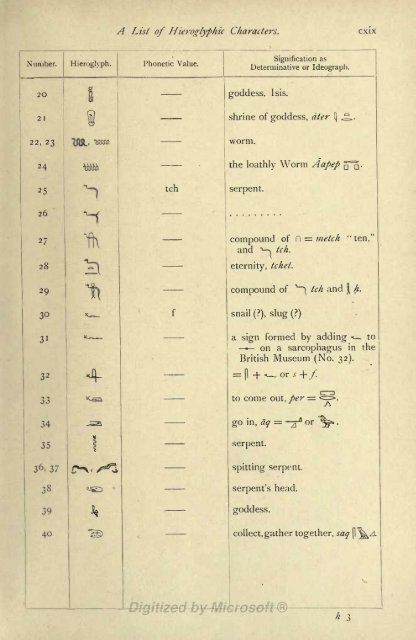 A List of Hieroglyphic Characters. cxix
Number. Hieroglyph. Phonetic Value. Signification as
Determinative or Ideograph.
20 — goddess, Isis.
21 — shrine of goddess, áter
22, 23 — worm.
24 — the loathly Worm Āapep
25 tch serpent.
26 — . . . . . . . . .
27 — compound of ∩ = metch "ten,"
and tch.
28 — eternity, tchet.
29 — compound of tch and
30 f snail (?), slug (?)
31 — a sign formed by adding to
on a sarcophagus in the
British Museum (No. 32).
32 — = + or s + f.
33 — to come out, per =
34 — go in, āq = or
35 — serpent.
36, 37 — spitting serpent.
38 — serpent's head.
39 — goddess.
40 — collect, gather together, saq
Digitized by Microsoft ®
h 3